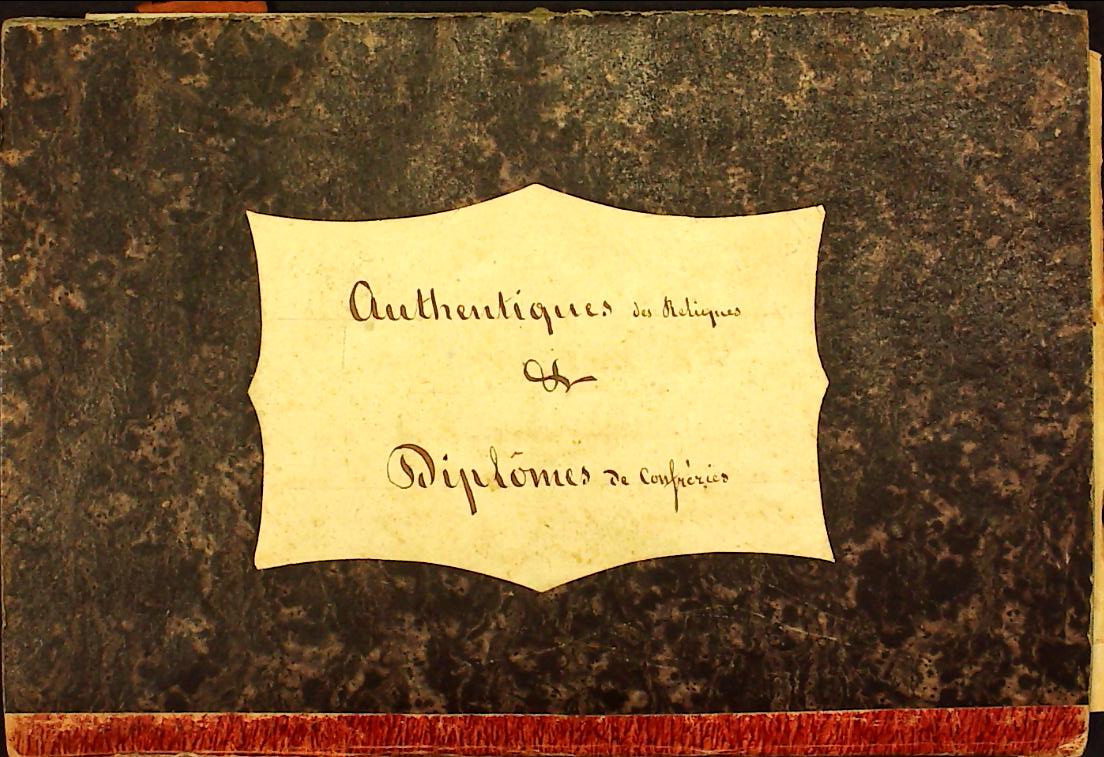 Authentiques des Reliques
&
Diplômes de Confréries